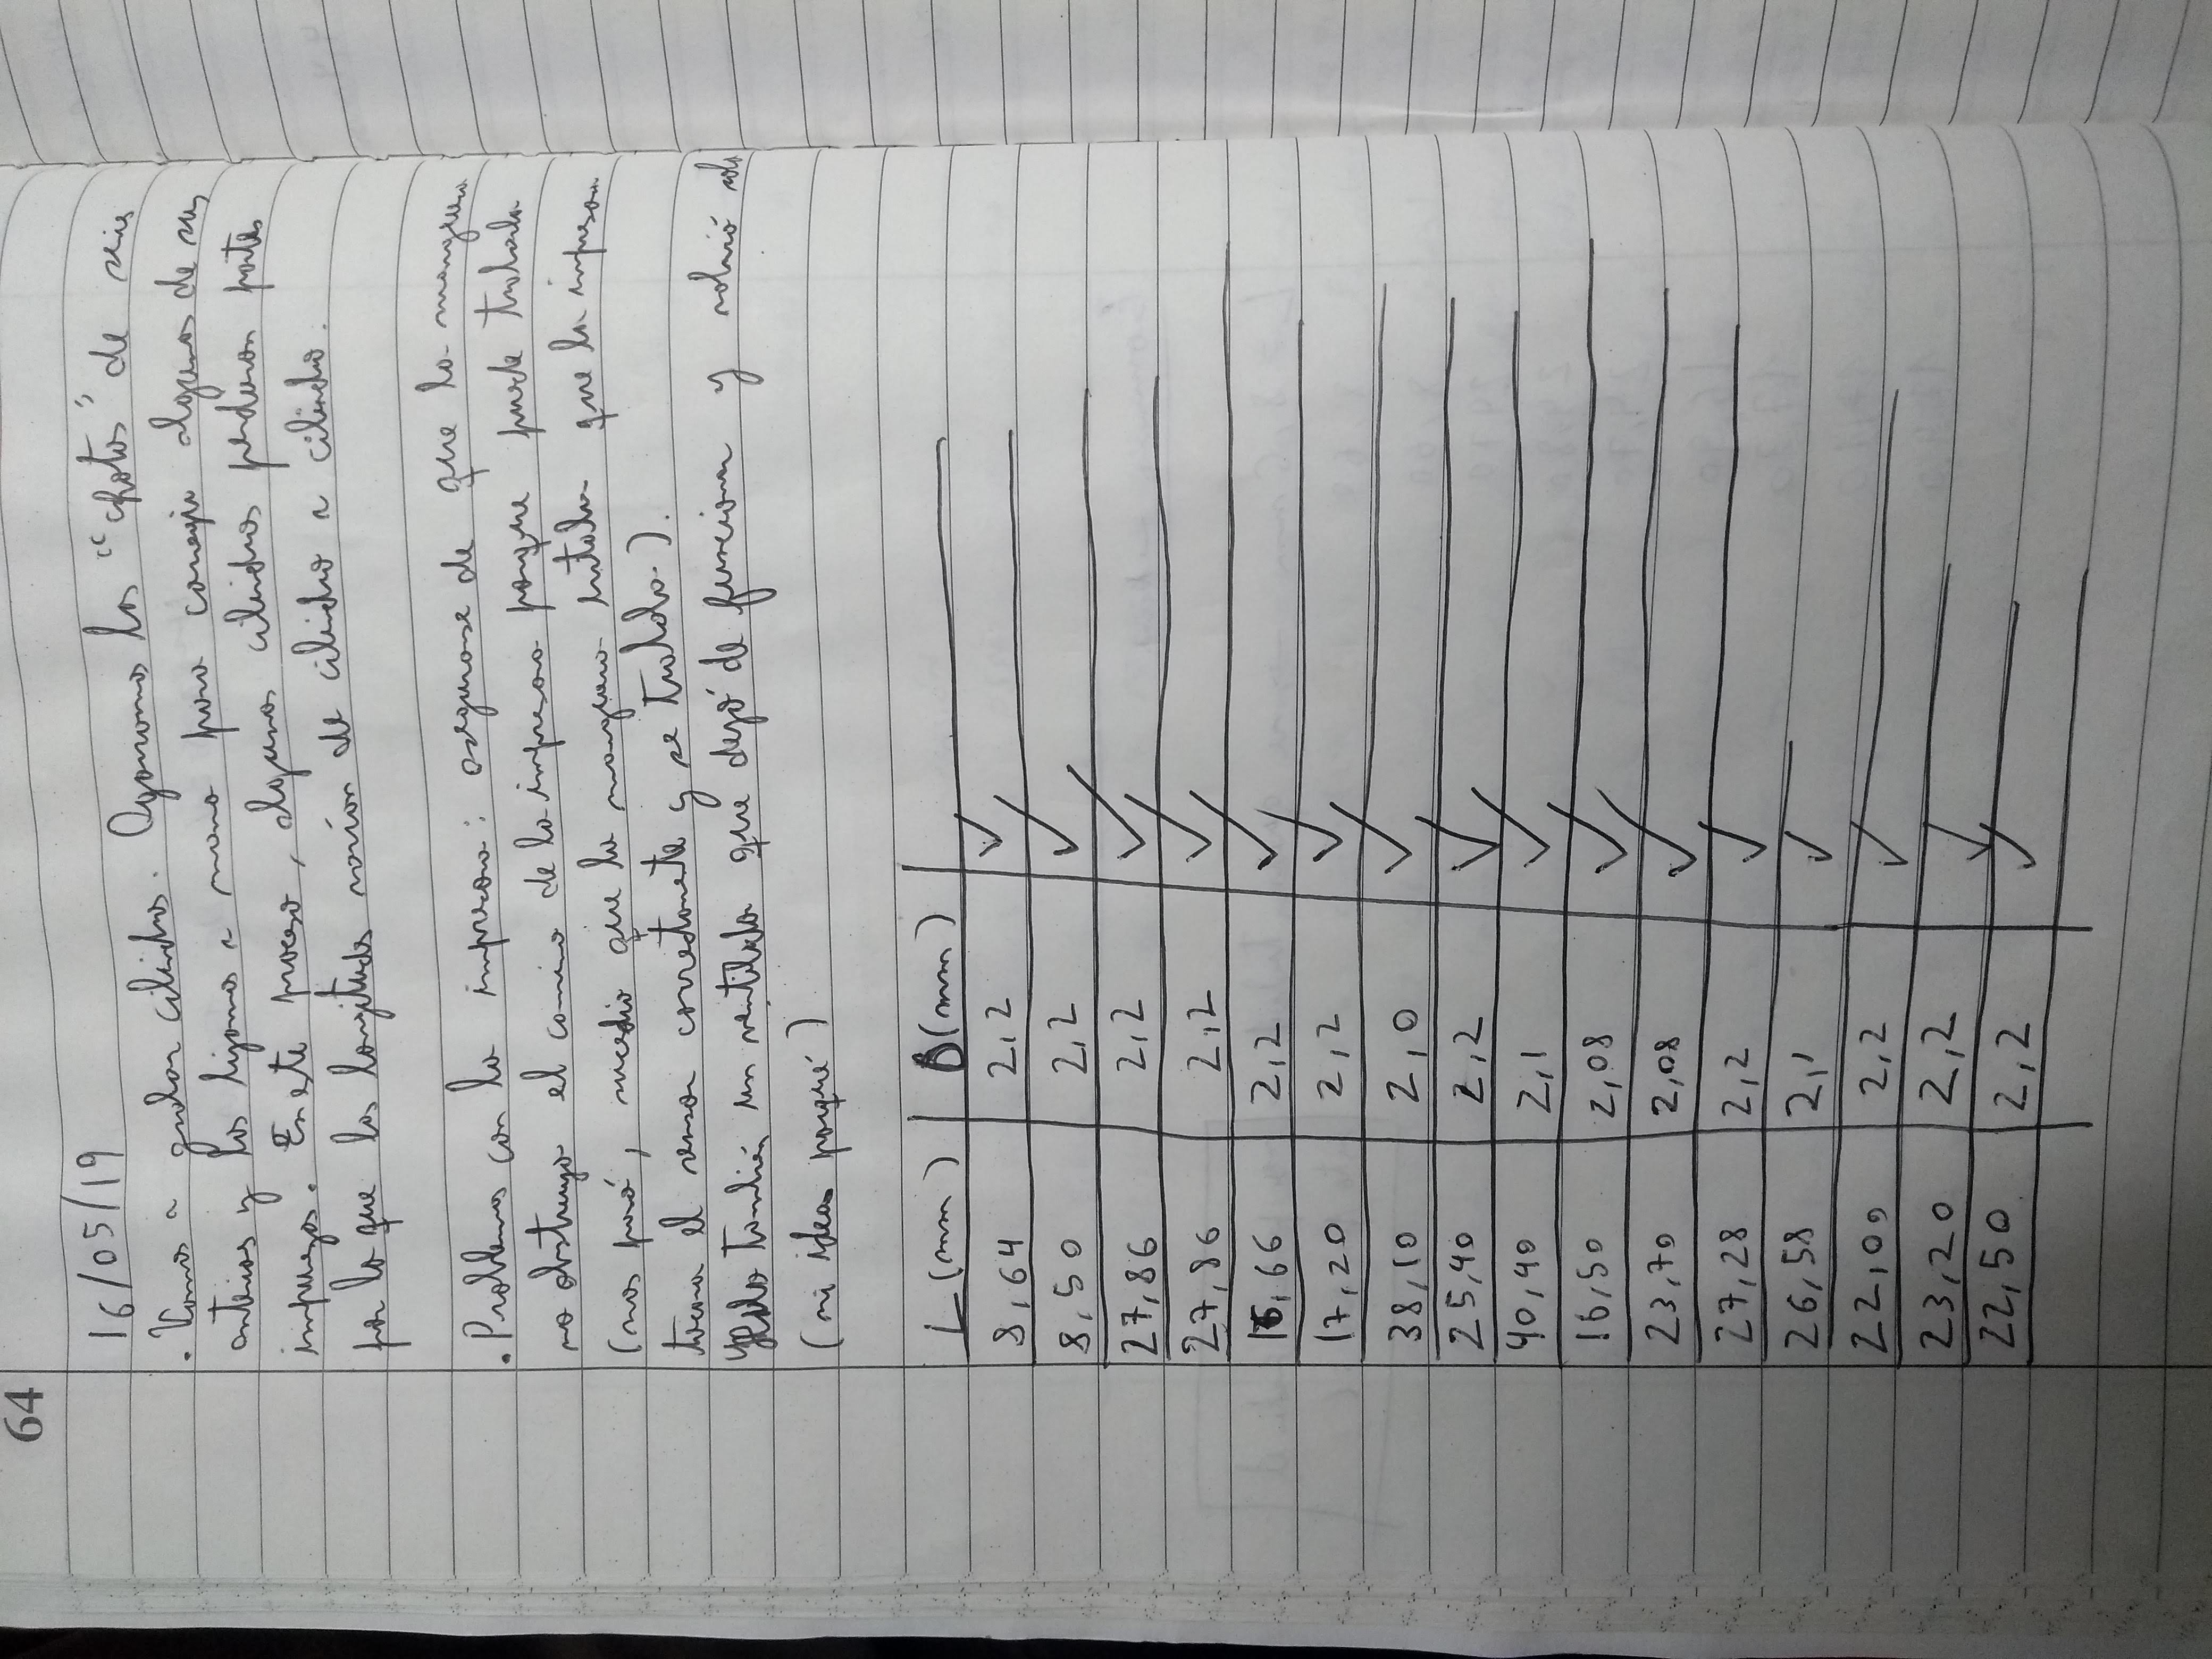 64
16/05/19
. Vamos a grabar cilindros. Agarramos los "chotos" de series
anteriores y los lijamos a mano para corregir algunas de sus
impurezas. En este proceso, algunos cilindros perdieron partes
por lo que las longitudes varían de cilindro a cilindro.
. Problemas con la impresora: asegurarse de que la manguera
no obstruya el camino de la impresora porque puede trabarla
(nos pasó, sucedio que la manguera evitaba que la impresora
tocara el sensor correctamente y se trababa).
Hubo también un ventilador que dejó de funcionar y volvió solo
(ni ideas porqué)
L (mm) D (mm)
8,64 2,2 ✓
8,50 2,2 ✓
27,86 2,2 ✓
27,86 2,2 ✓
16,66 2,2 ✓
17,20 2,2 ✓
38,10 2,0 ✓
25,40 2,2 ✓
40,40 2,1 ✓
16,50 2,08 ✓
23,70 2,08 ✓
27,28 2,2 ✓
26,58 2,1 ✓
22,00 2,2 ✓
23,20 2,2 ✓
22,50 2,2 ✓